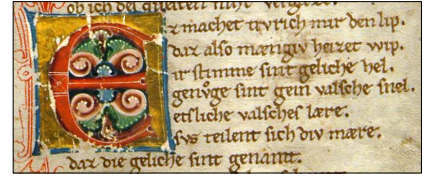 ob ich niht
Ez machet trvrich mir den lip.
daz also mængiv heizet wip.
ir stimme sint geliche hel.
genvͦge sint gein valsche snel.
etsliche valsches lære.
svs teilent sich div mære.
daz die geliche sint genamt.